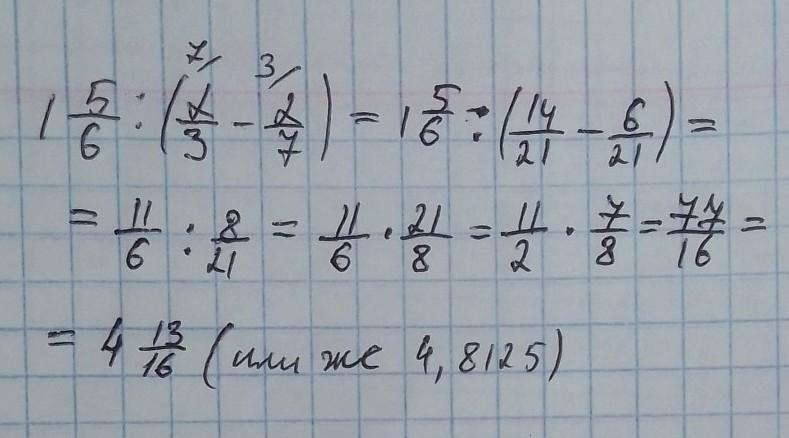 1 5/6 : (⁷⁄ 2/3 − ³⁄ 2/7) = 1 5/6 : (14/21 − 6/21) =
= 11/6 : 8/21 = 11/6 · 21/8 = 11/2 · 7/8 = 77/16 =
= 4 13/16 (или же 4,8125)